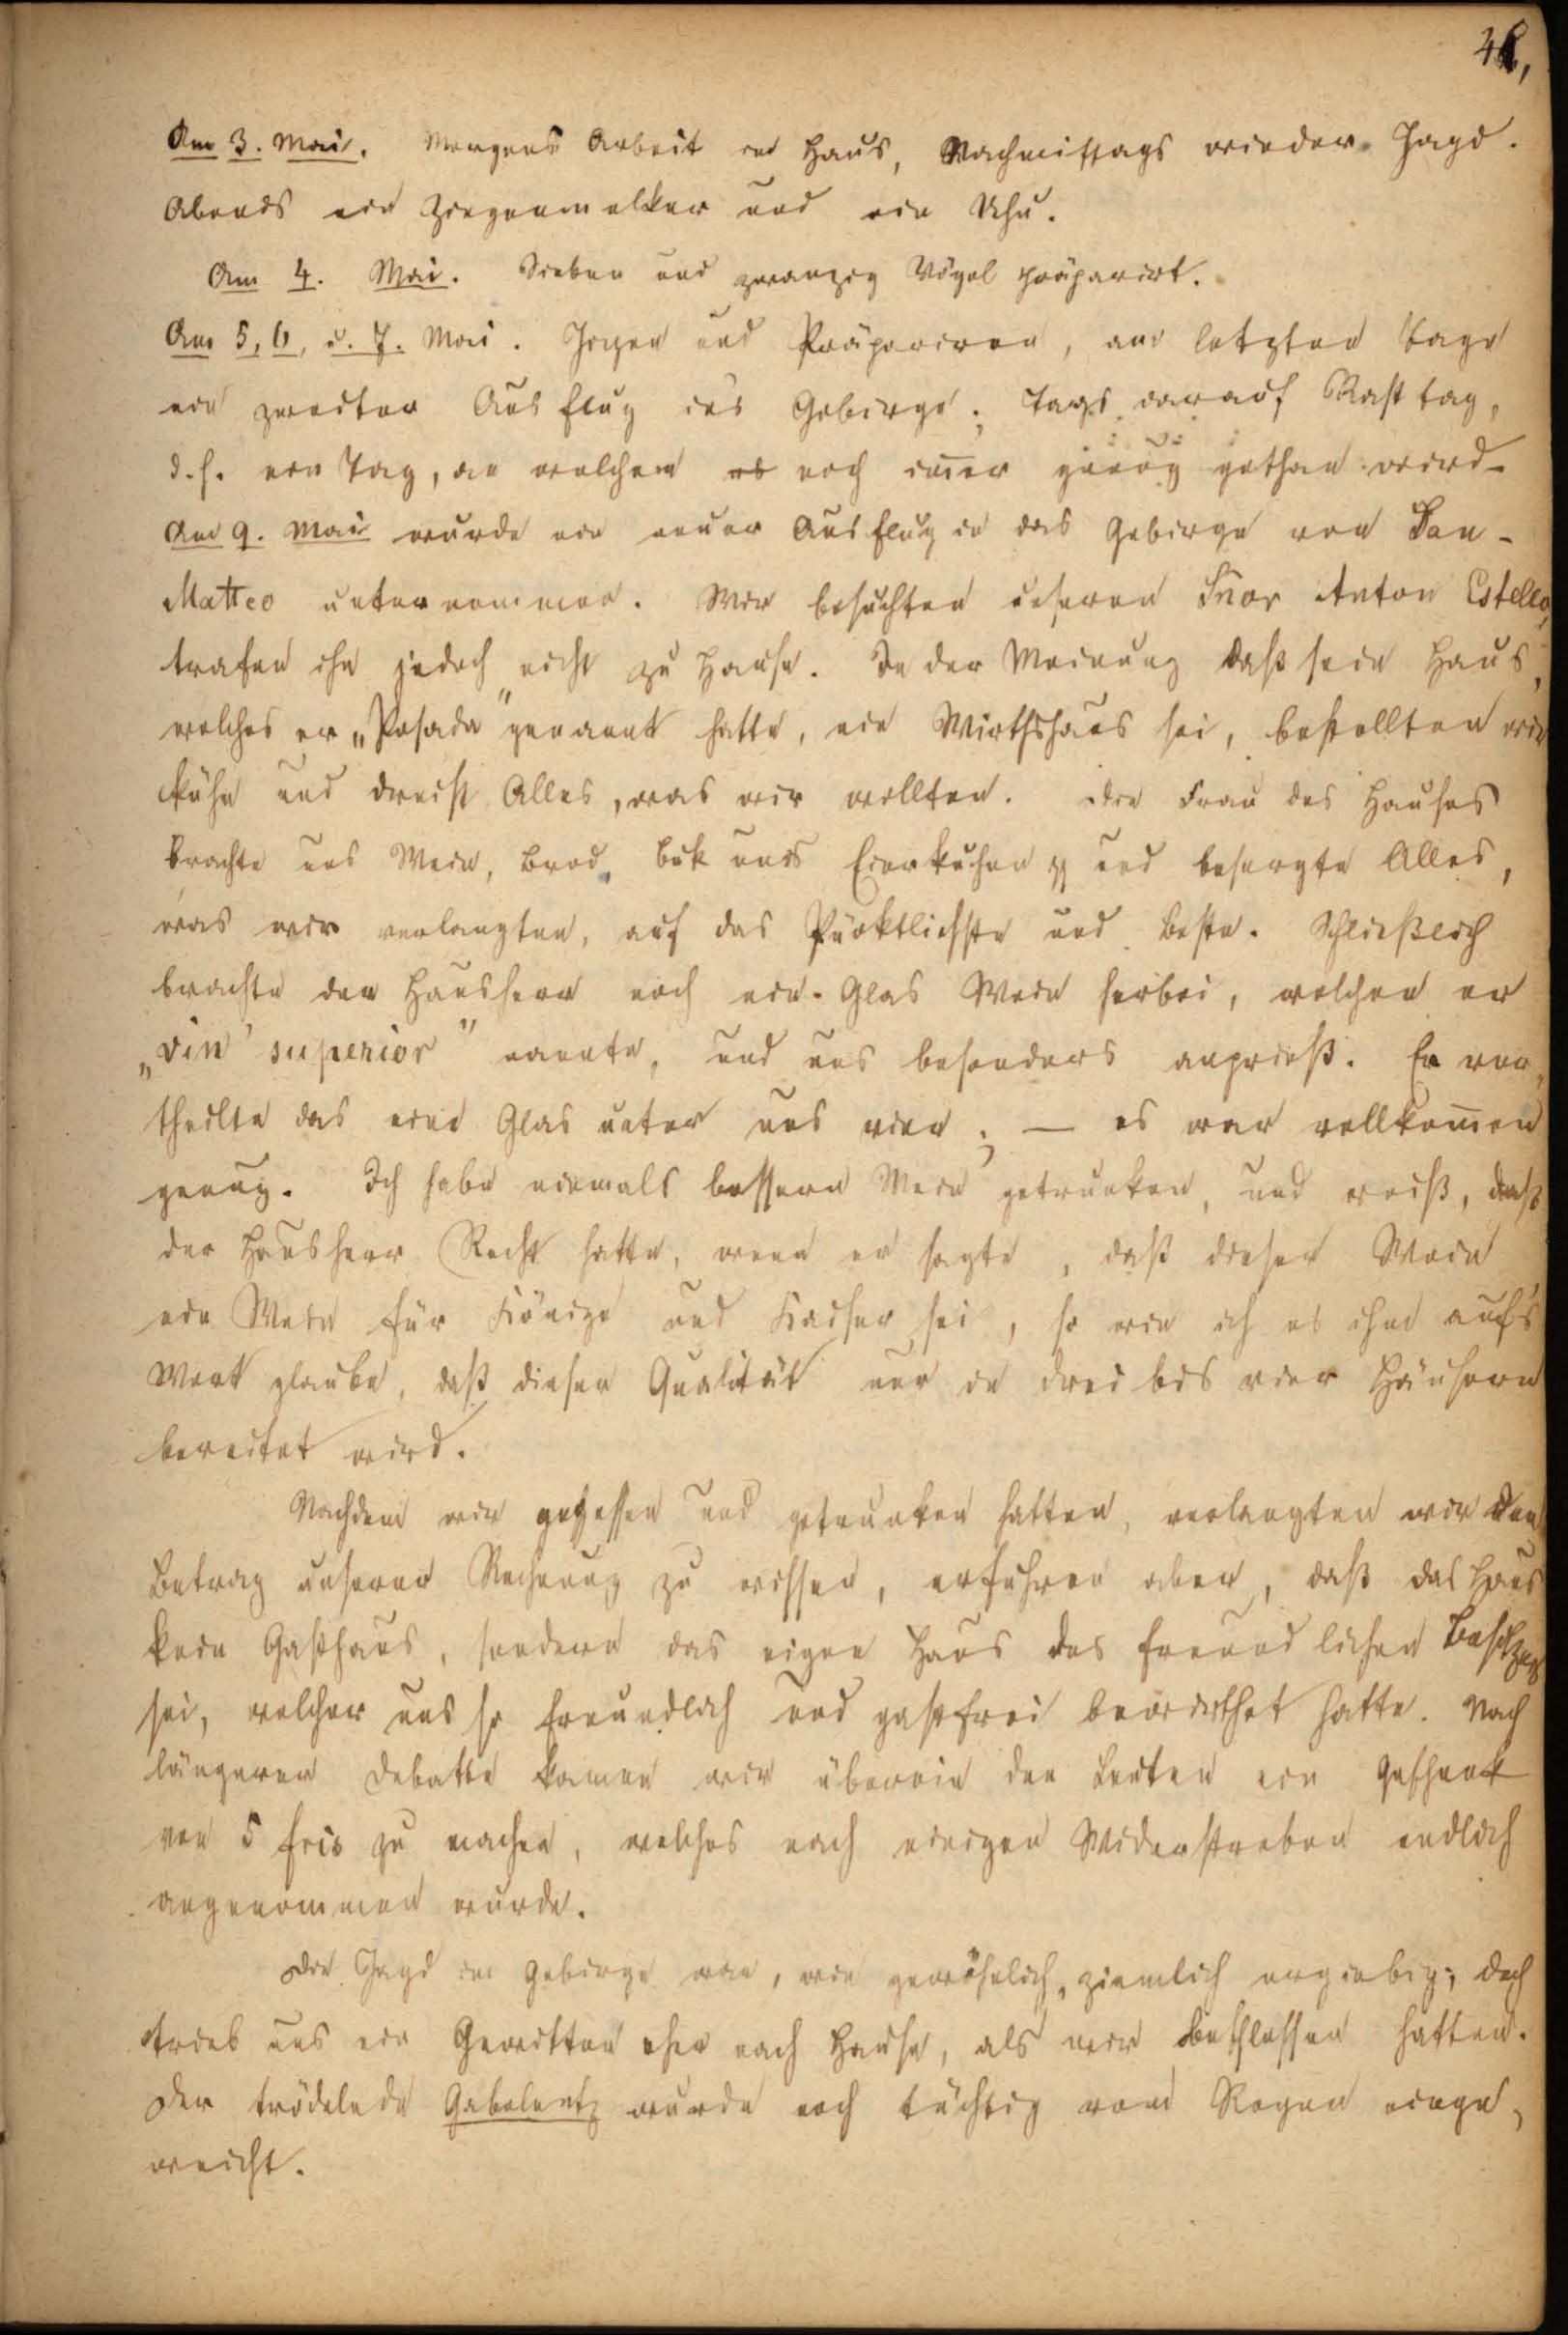 Am 3. Mai. Morgens Arbeit im Haus, Nachmittags wieder Jagd.
Abends ein Ziegenmelker und ein Uhu.
Am 4. Mai. Sieben und zwanzig Vögel präparirt.
Am 5, 6, u. 7. Mai. Jagen und Präpariren, am letzten Tage
ein zweiter Ausflug ins Gebirge; tags darauf Rasttag,
d. h. ein Tag, an welchem noch im̅er genug gethan wird.
Am 9. Mai wurde ein neuer Ausflug in das Gebirge von San-
Matteo unternommen. Wir besuchten unseren Snor Anton Estello,
trafen ihn jedoch nicht zu Hause. In der Meinung daß sein Haus,
welches er „Posada" genannt hatte, ein Wirthshaus sei, bestellten wir
kühn und dreist Alles, was wir wollten. Die Frau des Hauses
brachte uns Wein, Brod, buk uns Eierkuchen und besorgte Alles,
was wir verlangten, auf das Pünktlichste und Beste. Schließlich
brachte der Hausherr noch ein Glas Wein herbei, welchen er
„vin' superior" nannte, und uns besonders anprieß. Er ver-
theilte das eine Glas unter uns vier; — es war vollkom̅en
genug. Ich habe niemals bessern Wein getrunken, und weiß, daß
der Hausherr Recht hatte, wenn er sagte, daß dieser Wein
ein Wein für Könige und Kaiser sei, so wie ich es ihm auf's
Wort glaube, daß dieser Qualität nur in drei bis vier Häusern
bereitet wird.
Nachdem wir gegessen und getrunken hatten, verlangten wir den
Betrag unserer Rechnung zu wissen, erfuhren aber, daß das Haus
kein Gasthaus, sondern das eigne Haus des freundlichen Besitzers
sei, welcher uns so freundlich und gastfrei bewirthet hatte. Nach
längerer Debatte kamen wir überein den Leuten ein Geschenk
von 5 frcs zu machen, welches nach einigen Widerstreben endlich
angenommen wurde.
Die Jagd im Gebirge war, wie gewöhnlich, ziemlich ergiebig; doch
trieb uns ein Gewitter eher nach Hause, als wir beschlossen hatten.
Der trödelnde Gabelentz wurde noch tüchtig vom Regen einge-
weicht.